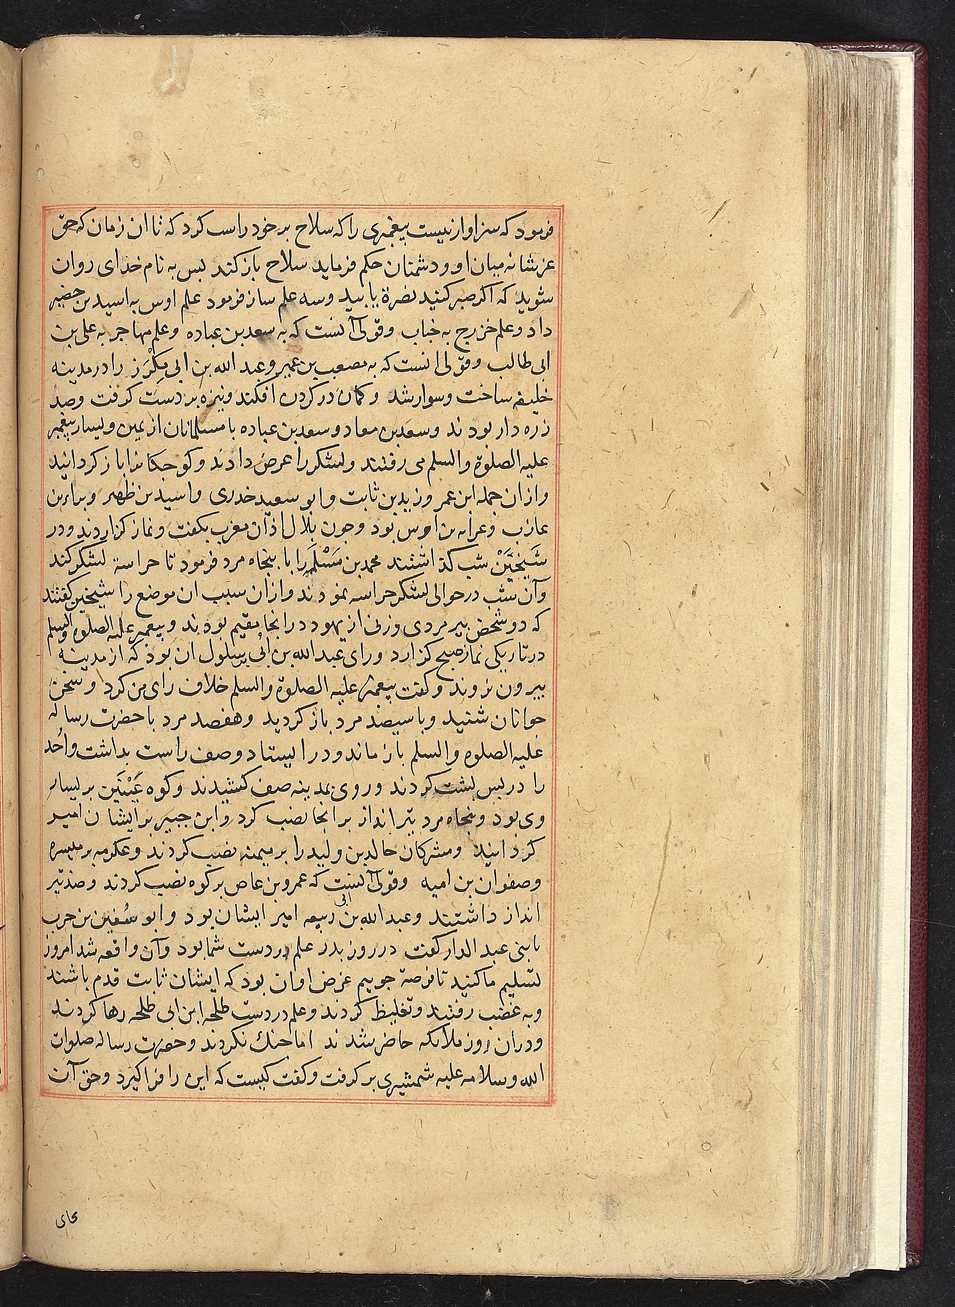 فرمود که سزاوار نیست پیغمبری را که سلاح بر خود راست کرد که تا ان زمان که حق
عز شانه میان او و دشمنان حکم فرماید سلاح باز کند بس به نام خدای روان
شوید که اکر صبر کنید نصرة یابید وسه علم ساز فرمود علم اوس به اسید بن حضیر
داد وعلم خزرج به خباب وقولی آنست که به سعد بن عباده وعلم مهاجر به علی بن
ابی طالب وقولی انست که به مصعب بن عمیر وعبد الله بن ابی مکرز را در مدینه
خلیفه ساخت وسوار شد وکمان در کردن افکند ونیزه بر دست کرفت وصد
زره دار بودند وسعد بن معاد وسعد بن عباده با مسلمانان از یمین ویسار پیغمبر
علیه الصلوة والسلم می رفتند ولشکر را عرض دادند وکوجکانرا باز کردانید
وازان جمله ابن عمر وزید بن ثابت وابو سعید خدری واسید بن ظهیر وبراء بن
عازب وعرابه بن اوس بود وجون بلال اذان مغرب بکفت ونماز کزاردند ودر
شیخین شب کذاشتند محمد بن مسلمه را با پنجاه مرد فرمود تا حراسة لشکر کند
وآن شب در حوالی لشکر حراسه نمودند وازان سبب ان موضع را شیخین کفتند
که دو شخص بیر مردی وزنی از یهود در انجا مقیم بودند وپیغمبر علیه الصلوة والسلم
در تاریکی نماز صبح کزارد ورای عبد الله بن ابی سلول ان بود که از مدینه
بیرون نروند وکفت پیغمبر علیه الصلوة والسلم خلاف رای من کرد وسخن
جوانان شنید وبا سیصد مرد باز کردید وهفصد مرد با حضرت رساله
علیه الصلوه والسلم باز ماند ودر ایستاد وصف راست بداشت واحد
را در بس بشت کردند وروی بمدینه صف کشیدند وکوه عینین بر یسار
وی بود وپنجاه مرد تیر انداز بر انجا نصب کرد وابن جبیر بر ایشان امیر
کردانید ومشرکان خالد بن ولید را بر میمنه نصب کردند وعکرمه بر میسره
وصفوان بن امیه وقولی آنست که عمرو بن عاص بر کوه نصب کردند وصد تیر
انداز داشتند وعبد الله بن ابی ربیعه امیر ایشان بود وابو سفین بن حرب
با بنی عبد الدار کفت در روز بدر علم در دست شما بود وآن واقعه شد امروز
تسلیم ما کنید تا فرصة جوییم غرض او ان بود که ایشان ثابت قدم باشند
وبه غضب رفتند وتغلیظ کردند وعلم در دست طلحه ابن ابی طلحه رها کردند
ودران روز ملائکه حاضر شدند اما جنك نکردند وحضرت رساله صلوات
الله وسلامه علیه شمشیری بر کرفت وکفت کیست که این را فرا کیرد وحق آن